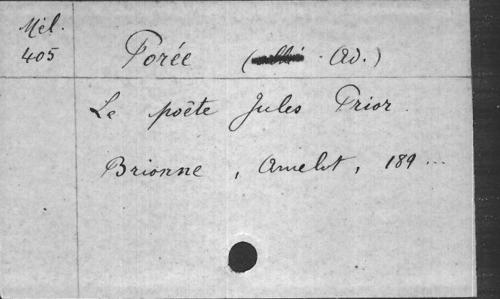 Mél.
405
Porée ( Ad.)
Le poëte Jules Prior.
Brionne, Amelot, 189...